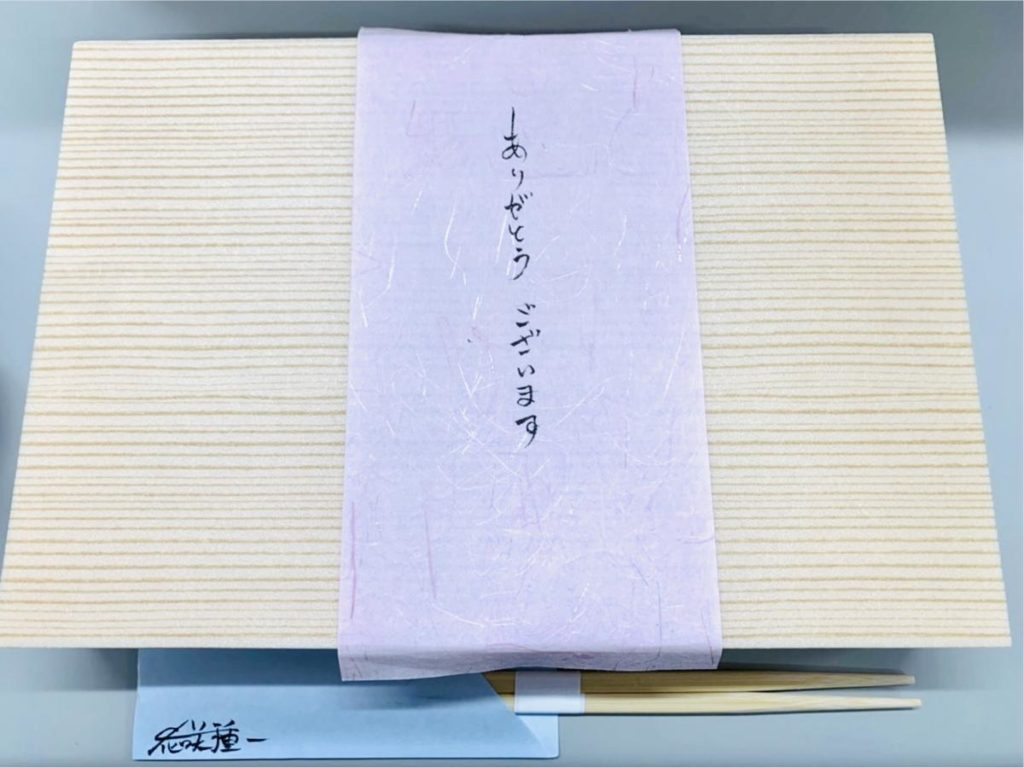 ありがとう ございます
花咲種一